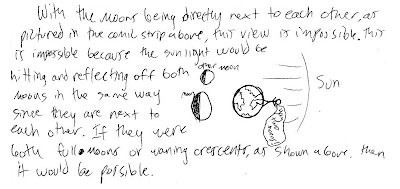 With the moons being directly next to each other, as
pictured in the comic strip above, this view is impossible. This
is impossible because the sunlight would be
hitting and reflecting off both
other moon
moons in the same way
moon
Sun
since they are next to
each other. If they were
both full moons or waning crescents, as shown above, then
it would be possible.